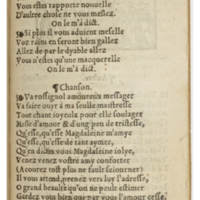 Vous estes rapporte nouuelle
D'autre chose ne vous meslez.
On le m'a dict.
Si plus il vous aduient meselle
Voz rains en seront bien gallez
Allez de par le dyable allez
Vous n'estes qu'une macquerelle
On le m'a dict.
¶Chanson.
Va rossignol amoureux messager
Va faire ouyr à ma seulle maistresse
Tout chant ioyeulx pour elle soulager
Melle d'amour & d'ung peu de tristesse,
Qu'esse, qu'esse Magdaleine m'amye
Qu'esse, qu'esse de tant aymer,
Qu'en dictes vous Magdaleine iolye,
Venez venez vostre amy conforter
(Auquel tout plus ne fault seiourner)
Il vous attend, prenez vers luy l'adresse,
O grand beaulté qu'on ne peult estimer
Gardez vous bien que par vous l'amour cesse.